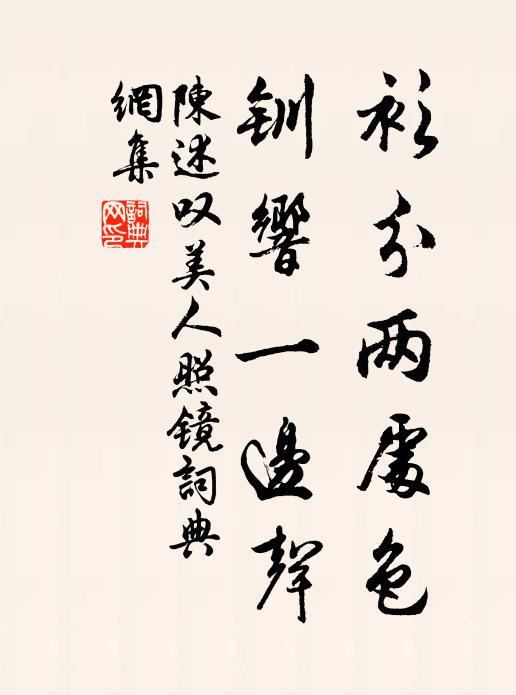 衫分兩處色
釧響一邊聲
陳述叹美人照鏡詞典
網集
詞典
网印